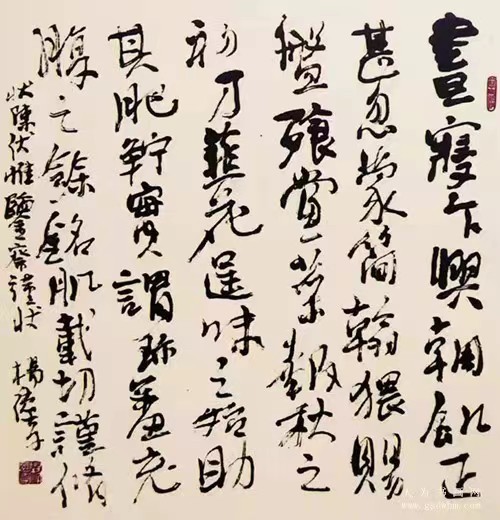 晝寢乍興輖飢正
甚忽蒙簡翰猥賜
盤飧當一葉報秋之
初乃韭花逞味之始助
其肥羜實謂珍羞充
腹之餘銘肌載切謹修
狀陳伏惟鑒察謹狀 楊